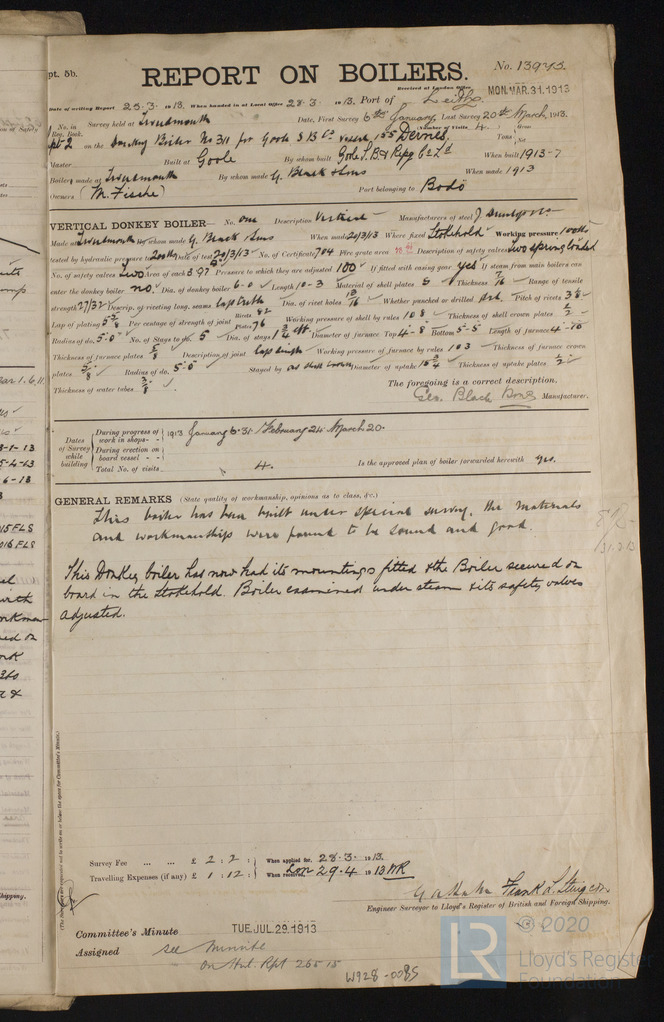 pt. 5b.
REPORT ON BOILERS.
No. 13943.
Received at London Office MON. MAR. 31. 1913
Date of writing Report 25.3. 1913. When handed in at Local Office 28.3. 1913. Port of Leith
No. in Reg. Book. Survey held at Tweedmouth Date, First Survey 6th January Last Survey 20th March 1913.
(Number of Visits 4.)
on the Donkey Boiler No 311 for Goole S B Co vessel 155 Tons Gross Net
Master Built at Goole By whom built Goole S.B. & Repg Co Ld When built 1913-7
Boiler made at Tweedmouth By whom made G. Black & Sons When made 1913
Owners Port belonging to Bodö
VERTICAL DONKEY BOILER— No. one Description Vertical Manufacturers of steel
Made at Tweedmouth by whom made G. Black & Sons When made 20/3/13 Where fixed Stokehold Working pressure 100 lbs
tested by hydraulic pressure to 200 lbs Date of test 20/3/13 No. of Certificate 704 Fire grate area Description of safety valves Two spring loaded
No. of safety valves Two Area of each 3.97 Pressure to which they are adjusted 100 If fitted with easing gear yes If steam from main boilers can
enter the donkey boiler no. Dia. of donkey boiler 6-0 Length 10-3 Material of shell plates S Thickness 7/16 Range of tensile
strength 27/32 Descrip. of riveting long. seams Lap Dia. of rivet holes 13/16 Whether punched or drilled Pitch of rivets
Lap of plating Per centage of strength of joint Rivets 82 Plates 76 Working pressure of shell by rules 108 Thickness of shell crown plates 1/2
Radius of do. 5-0 No. of Stays to do. 5 Dia. of stays 1 3/4 eff Diameter of furnace Top 4-8 Bottom 5-5 Length of furnace 4-10
Thickness of furnace plates 5/8 Description of joint Lap single Working pressure of furnace by rules 103 Thickness of furnace crown
plates 5/8 Radius of do. 5-0 Stayed by as shell crown Diameter of uptake 15 3/4 Thickness of uptake plates 1/2
Thickness of water tubes 3/8
The foregoing is a correct description.
Geo. Black & Sons Manufacturer.
Dates of Survey while building
During progress of work in shops - - 1913 January 6.31 February 24 March 20.
During erection on board vessel - -
Total No. of visits 4. Is the approved plan of boiler forwarded herewith yes.
GENERAL REMARKS (State quality of workmanship, opinions as to class, &c.)
This boiler has been built under special survey, the materials
and workmanship were found to be sound and good.
This Donkey boiler has now had its mountings fitted & the Boiler secured on
board in the Stokehold. Boiler examined under steam & its safety valves
adjusted.
Survey Fee ... ... £ 2 : 2 : When applied for, 28.3. 1913.
Travelling Expenses (if any) £ 1 : 12 : When received, 29.4 1913
Frank L. Sturgeon
Engineer Surveyor to Lloyd's Register of British and Foreign Shipping.
Committee's Minute TUE. JUL. 29. 1913
Assigned see minute
on Hul. Rpt 26515
W928-0085
© 2020
LR
Lloyd's Register
Foundation